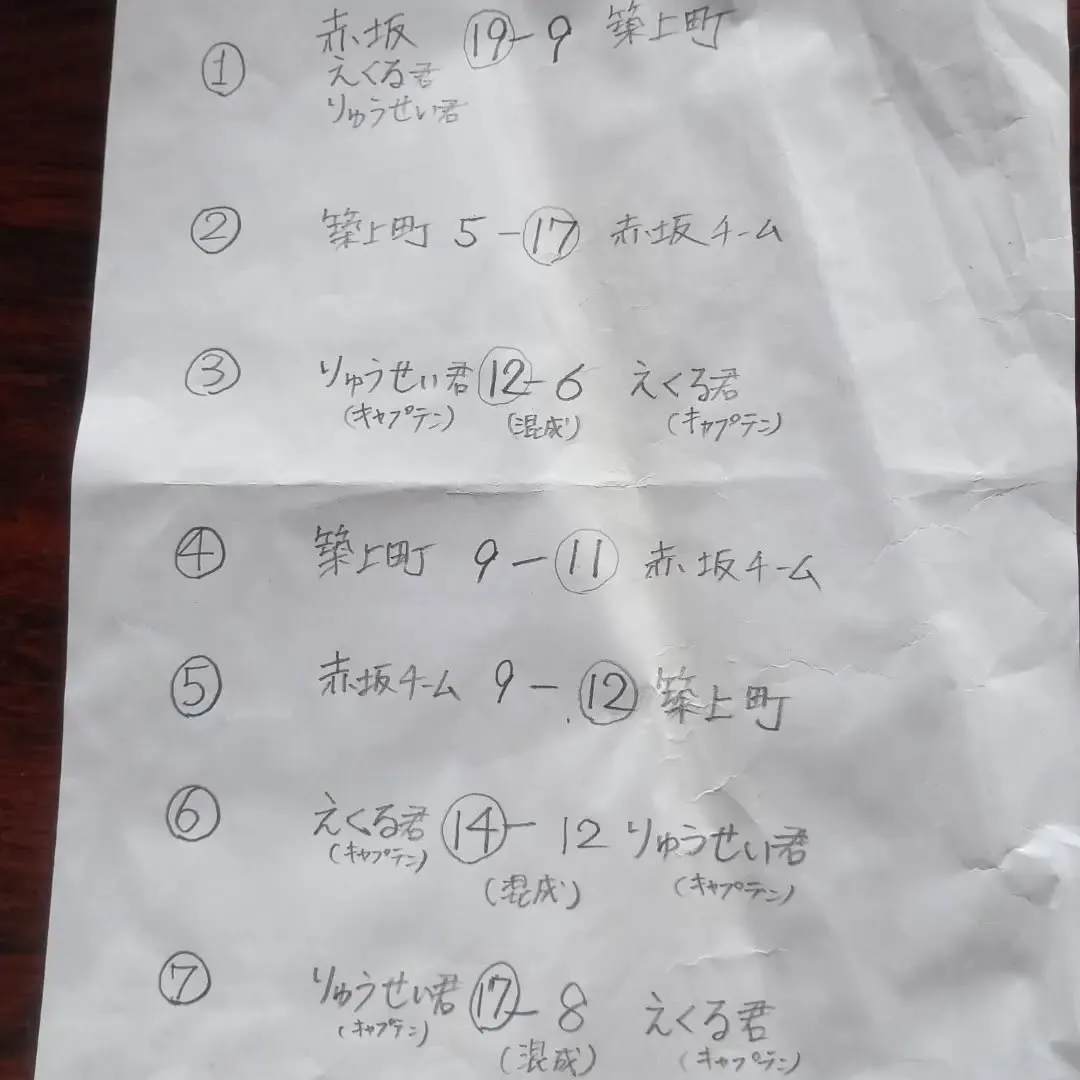 ① 赤坂 ⑲-9 築上町
えくる君
りゅうせい君
② 築上町 5-⑰ 赤坂チーム
③ りゅうせい君 ⑫-6 えくる君
(キャプテン) (混成) (キャプテン)
④ 築上町 9-⑪ 赤坂チーム
⑤ 赤坂チーム 9-⑫ 築上町
⑥ えくる君 ⑭-12 りゅうせい君
(キャプテン) (混成) (キャプテン)
⑦ りゅうせい君 ⑰-8 えくる君
(キャプテン) (混成) (キャプテン)